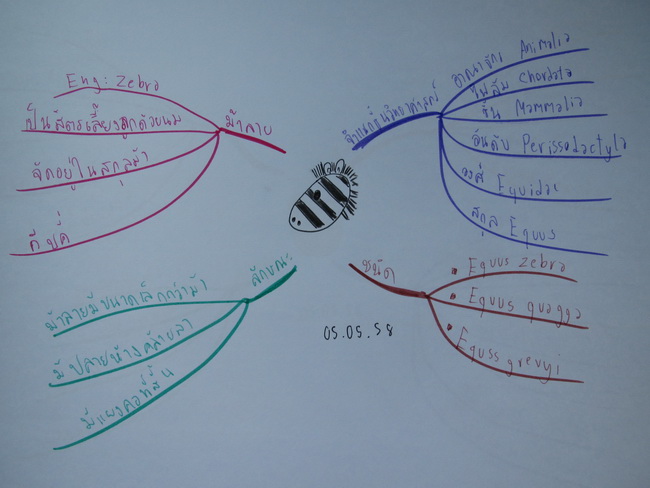 ม้าลาย
Eng: Zebra
เป็นสัตรเลี้ยงลูกด้วยนม
จัดอยู่ในสกุลม้า
กีบคี่
จำแนกชั้นวิทยาศาสตร์
อาณาจักร Animalia
ไฟลัม Chordata
ชั้น Mammalia
อันดับ Perissodactyla
วงศ์ Equidae
สกุล Equus
ลักษณะ
ม้าลายมีขนาดเล็กกว่าม้า
มีปลายหางคล้ายลา
มีแผงคอที่สั้น
ชนิด
Equus zebra
Equus quagga
Equss grevyi
05.05.58